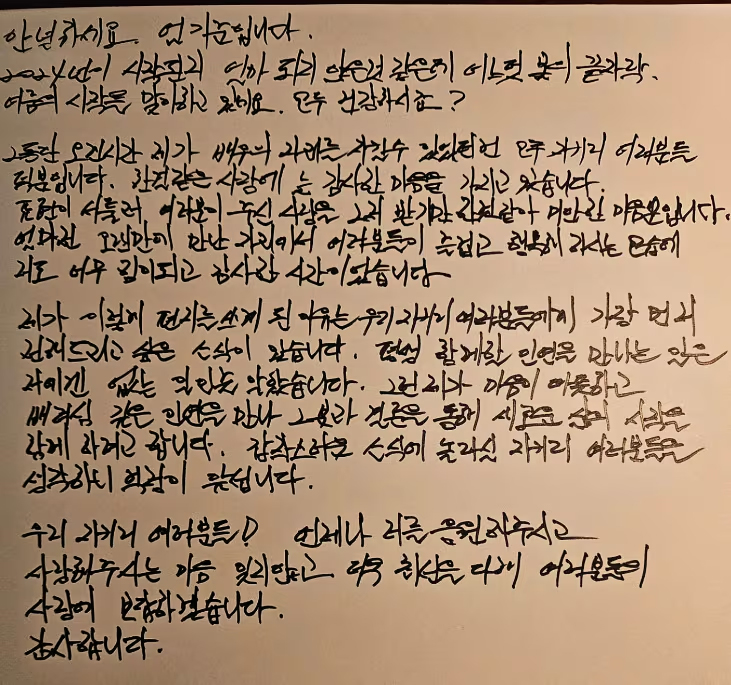 안녕하세요. 엄기준입니다.
2024년이 시작된지 얼마 되지 않은것 같은데 어느덧 봄의 끝자락.
여름의 시작을 맞이하고 있네요. 모두 건강하시죠?
그동안 오랜시간 제가 배우의 자리를 지킬수 있었던건 모두 자기지 여러분들
덕분입니다. 한결같은 사랑에 늘 감사한 마음을 가지고 있습니다.
표현이 서툴러, 여러분이 주신 사랑을 그저 받기만 한것같아 미안한 마음뿐입니다.
얼마전 오랜만에 만난 자리에서 여러분들이 즐겁고 행복해 하시는 모습에
저도 너무 힘이되고 감사한 시간이었습니다
제가 이렇게 편지를쓰게 된 이유는 우리 자기지 여러분들에게 가장 먼저
전해드리고 싶은 소식이 있습니다. 평생 함께할 인연을 만나는 일은
저에겐 없는 일인줄 알았습니다. 그런 제가 마음이 따뜻하고
배려심 깊은 인연을 만나 그분과 결혼을 통해 새로운 삶의 시작을
함께 하려고 합니다. 갑작스러운 소식에 놀라실 자기지 여러분들을
생각하니 걱정이 앞섭니다.
우리 자기지 여러분들! 언제나 저를 응원해주시고
사랑해주시는 마음 잊지않고 더욱 최선을 다해 여러분들의
사랑에 보답하겠습니다.
감사합니다.